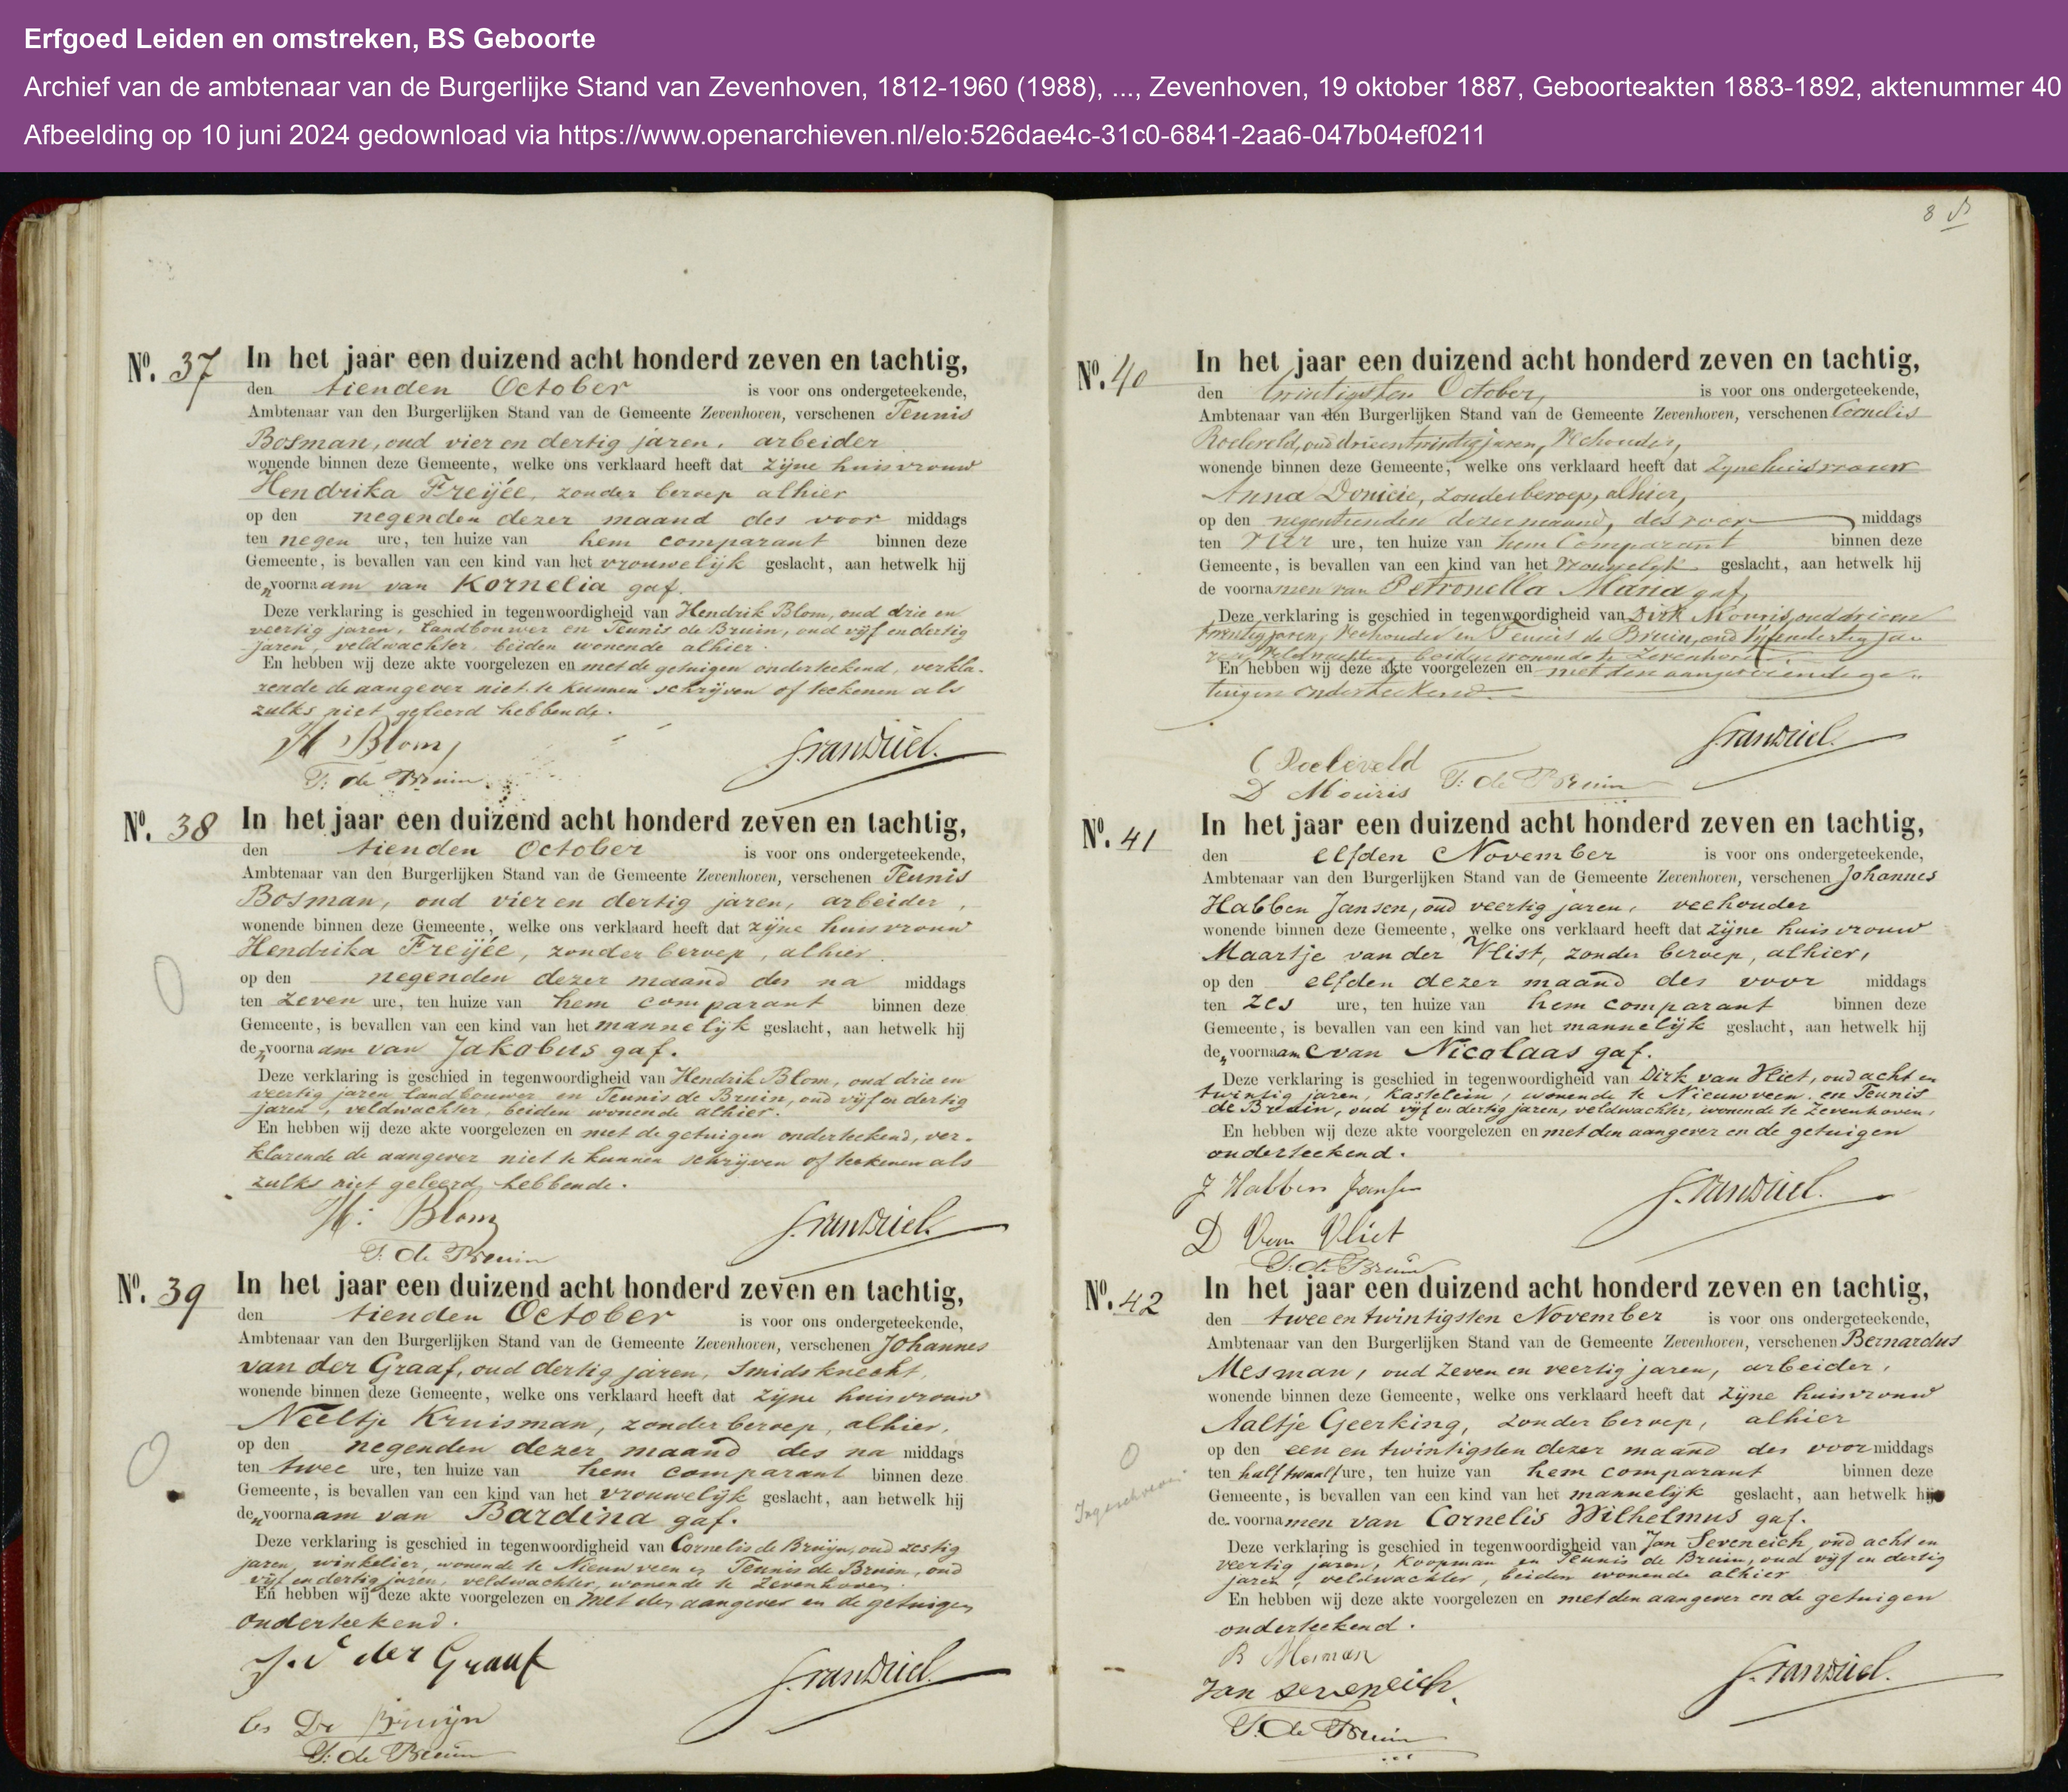 Erfgoed Leiden en omstreken, BS Geboorte
Archief van de ambtenaar van de Burgerlijke Stand van Zevenhoven, 1812-1960 (1988), ..., Zevenhoven, 19 oktober 1887, Geboorteakten 1883-1892, aktenummer 40
Afbeelding op 10 juni 2024 gedownload via https://www.openarchieven.nl/elo:526dae4c-31c0-6841-2aa6-047b04ef0211
No. 37 In het jaar een duizend acht honderd zeven en tachtig,
den tienden October is voor ons ondergeteekende,
Ambtenaar van den Burgerlijken Stand van de Gemeente Zevenhoven, verschenen Teunis
Bosman, oud vier en dertig jaren, arbeider
wonende binnen deze Gemeente, welke ons verklaard heeft dat zijne huisvrouw
Hendrika Freijée, zonder beroep alhier
op den negenden dezer maand des voor middags
ten negen ure, ten huize van hem comparant binnen deze
Gemeente, is bevallen van een kind van het vrouwelijk geslacht, aan hetwelk hij
den voornaam van Kornelia gaf.
Deze verklaring is geschied in tegenwoordigheid van Hendrik Blom, oud drie en
veertig jaren, landbouwer en Teunis de Bruin, oud vijf en dertig
jaren, veldwachter, beiden wonende alhier.
En hebben wij deze akte voorgelezen en met de getuigen onderteekend, verkla-
rende de aangever niet te kunnen schrijven of teekenen als
zulks niet geleerd hebbende.
H Blom
T. de Bruin
No. 38 In het jaar een duizend acht honderd zeven en tachtig,
den tienden October is voor ons ondergeteekende,
Ambtenaar van den Burgerlijken Stand van de Gemeente Zevenhoven, verschenen Teunis
Bosman, oud vier en dertig jaren, arbeider,
wonende binnen deze Gemeente, welke ons verklaard heeft dat zijne huisvrouw
Hendrika Freijée, zonder beroep, alhier
op den negenden dezer maand des na middags
ten zeven ure, ten huize van hem comparant binnen deze
Gemeente, is bevallen van een kind van het mannelijk geslacht, aan hetwelk hij
den voornaam van Jakobus gaf.
Deze verklaring is geschied in tegenwoordigheid van Hendrik Blom, oud drie en
veertig jaren landbouwer en Teunis de Bruin, oud vijf en dertig
jaren, veldwachter, beiden wonende alhier.
En hebben wij deze akte voorgelezen en met de getuigen onderteekend, ver-
klarende de aangever niet te kunnen schrijven of teekenen als
zulks niet geleerd hebbende.
H: Blom
T. de Bruin
No. 39 In het jaar een duizend acht honderd zeven en tachtig,
den tienden October is voor ons ondergeteekende,
Ambtenaar van den Burgerlijken Stand van de Gemeente Zevenhoven, verschenen Johannes
van der Graaf, oud dertig jaren, smidsknecht,
wonende binnen deze Gemeente, welke ons verklaard heeft dat zijne huisvrouw
Neeltje Kruisman, zonder beroep, alhier,
op den negenden dezer maand des na middags
ten twee ure, ten huize van hem comparant binnen deze
Gemeente, is bevallen van een kind van het vrouwelijk geslacht, aan hetwelk hij
den voornaam van Bardina gaf.
Deze verklaring is geschied in tegenwoordigheid van Cornelis de Bruijn, oud zestig
jaren, winkelier, wonende te Nieuwveen en Teunis de Bruin, oud
vijf en dertig jaren, veldwachter, wonende te Zevenhoven.
En hebben wij deze akte voorgelezen en met den aangever en de getuigen
onderteekend.
J. v der Graaf
Cs De Bruijn
T. de Bruin
No. 40 In het jaar een duizend acht honderd zeven en tachtig,
den twintigsten October, is voor ons ondergeteekende,
Ambtenaar van den Burgerlijken Stand van de Gemeente Zevenhoven, verschenen Cornelis
Roeleveld, oud drieentwintig jaren, Vehouder,
wonende binnen deze Gemeente, welke ons verklaard heeft dat zijne huisvrouw
Anna Donicie, zonder beroep, alhier,
op den negentienden dezer maand, des voor middags
ten vier ure, ten huize van hem Comparant binnen deze
Gemeente, is bevallen van een kind van het vrouwelijk geslacht, aan hetwelk hij
de voornamen van Petronella Maria gaf,
Deze verklaring is geschied in tegenwoordigheid van Dirk Mouris, oud drieen
twintig jaren, Veehouder en Teunis de Bruin, oud vijfendertig ja-
ren, Veldwachter, beiden wonende te Zevenhoven.
En hebben wij deze akte voorgelezen en met den aangever en de ge-
tuigen onderteekend.
C Roeleveld
D Mouris T. de Bruin
No. 41 In het jaar een duizend acht honderd zeven en tachtig,
den elfden November is voor ons ondergeteekende,
Ambtenaar van den Burgerlijken Stand van de Gemeente Zevenhoven, verschenen Johannes
Habben Jansen, oud veertig jaren, veehouder
wonende binnen deze Gemeente, welke ons verklaard heeft dat zijne huisvrouw
Maartje van der Vlist, zonder beroep, alhier,
op den elfden dezer maand des voor middags
ten zes ure, ten huize van hem comparant binnen deze
Gemeente, is bevallen van een kind van het mannelijk geslacht, aan hetwelk hij
den voornaam van Nicolaas gaf.
Deze verklaring is geschied in tegenwoordigheid van Dirk van Vliet, oud acht en
twintig jaren, kastelein, wonende te Nieuwveen en Teunis
de Bruin, oud vijf en dertig jaren, veldwachter, wonende te Zevenhoven,
En hebben wij deze akte voorgelezen en met den aangever en de getuigen
onderteekend.
J Habben Jansen
D Van Vliet
T. de Bruin
No. 42 In het jaar een duizend acht honderd zeven en tachtig,
den twee en twintigsten November is voor ons ondergeteekende,
Ambtenaar van den Burgerlijken Stand van de Gemeente Zevenhoven, verschenen Bernardus
Mesman, oud zeven en veertig jaren, arbeider,
wonende binnen deze Gemeente, welke ons verklaard heeft dat zijne huisvrouw
Aaltje Geerking, zonder beroep, alhier
op den een en twintigsten dezer maand des voor middags
ten half twaalf ure, ten huize van hem comparant binnen deze
Gemeente, is bevallen van een kind van het mannelijk geslacht, aan hetwelk hij
de voornamen van Cornelis Wilhelmus gaf.
Deze verklaring is geschied in tegenwoordigheid van Jan Seveneich, oud acht en
veertig jaren, koopman en Teunis de Bruin, oud vijf en dertig
jaren, veldwachter, beiden wonende alhier
En hebben wij deze akte voorgelezen en met den aangever en de getuigen
onderteekend.
B Mesman
Jan Seveneich
T. de Bruin